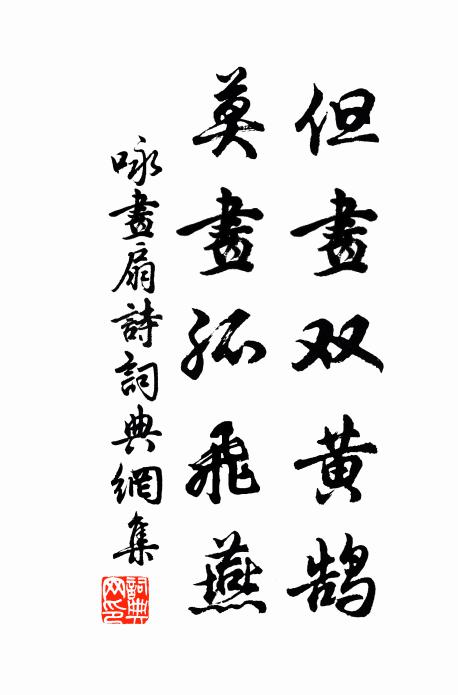 但畫双黄鹄
莫畫孤飛燕
咏畫扇詩詞典網集
詞典網印